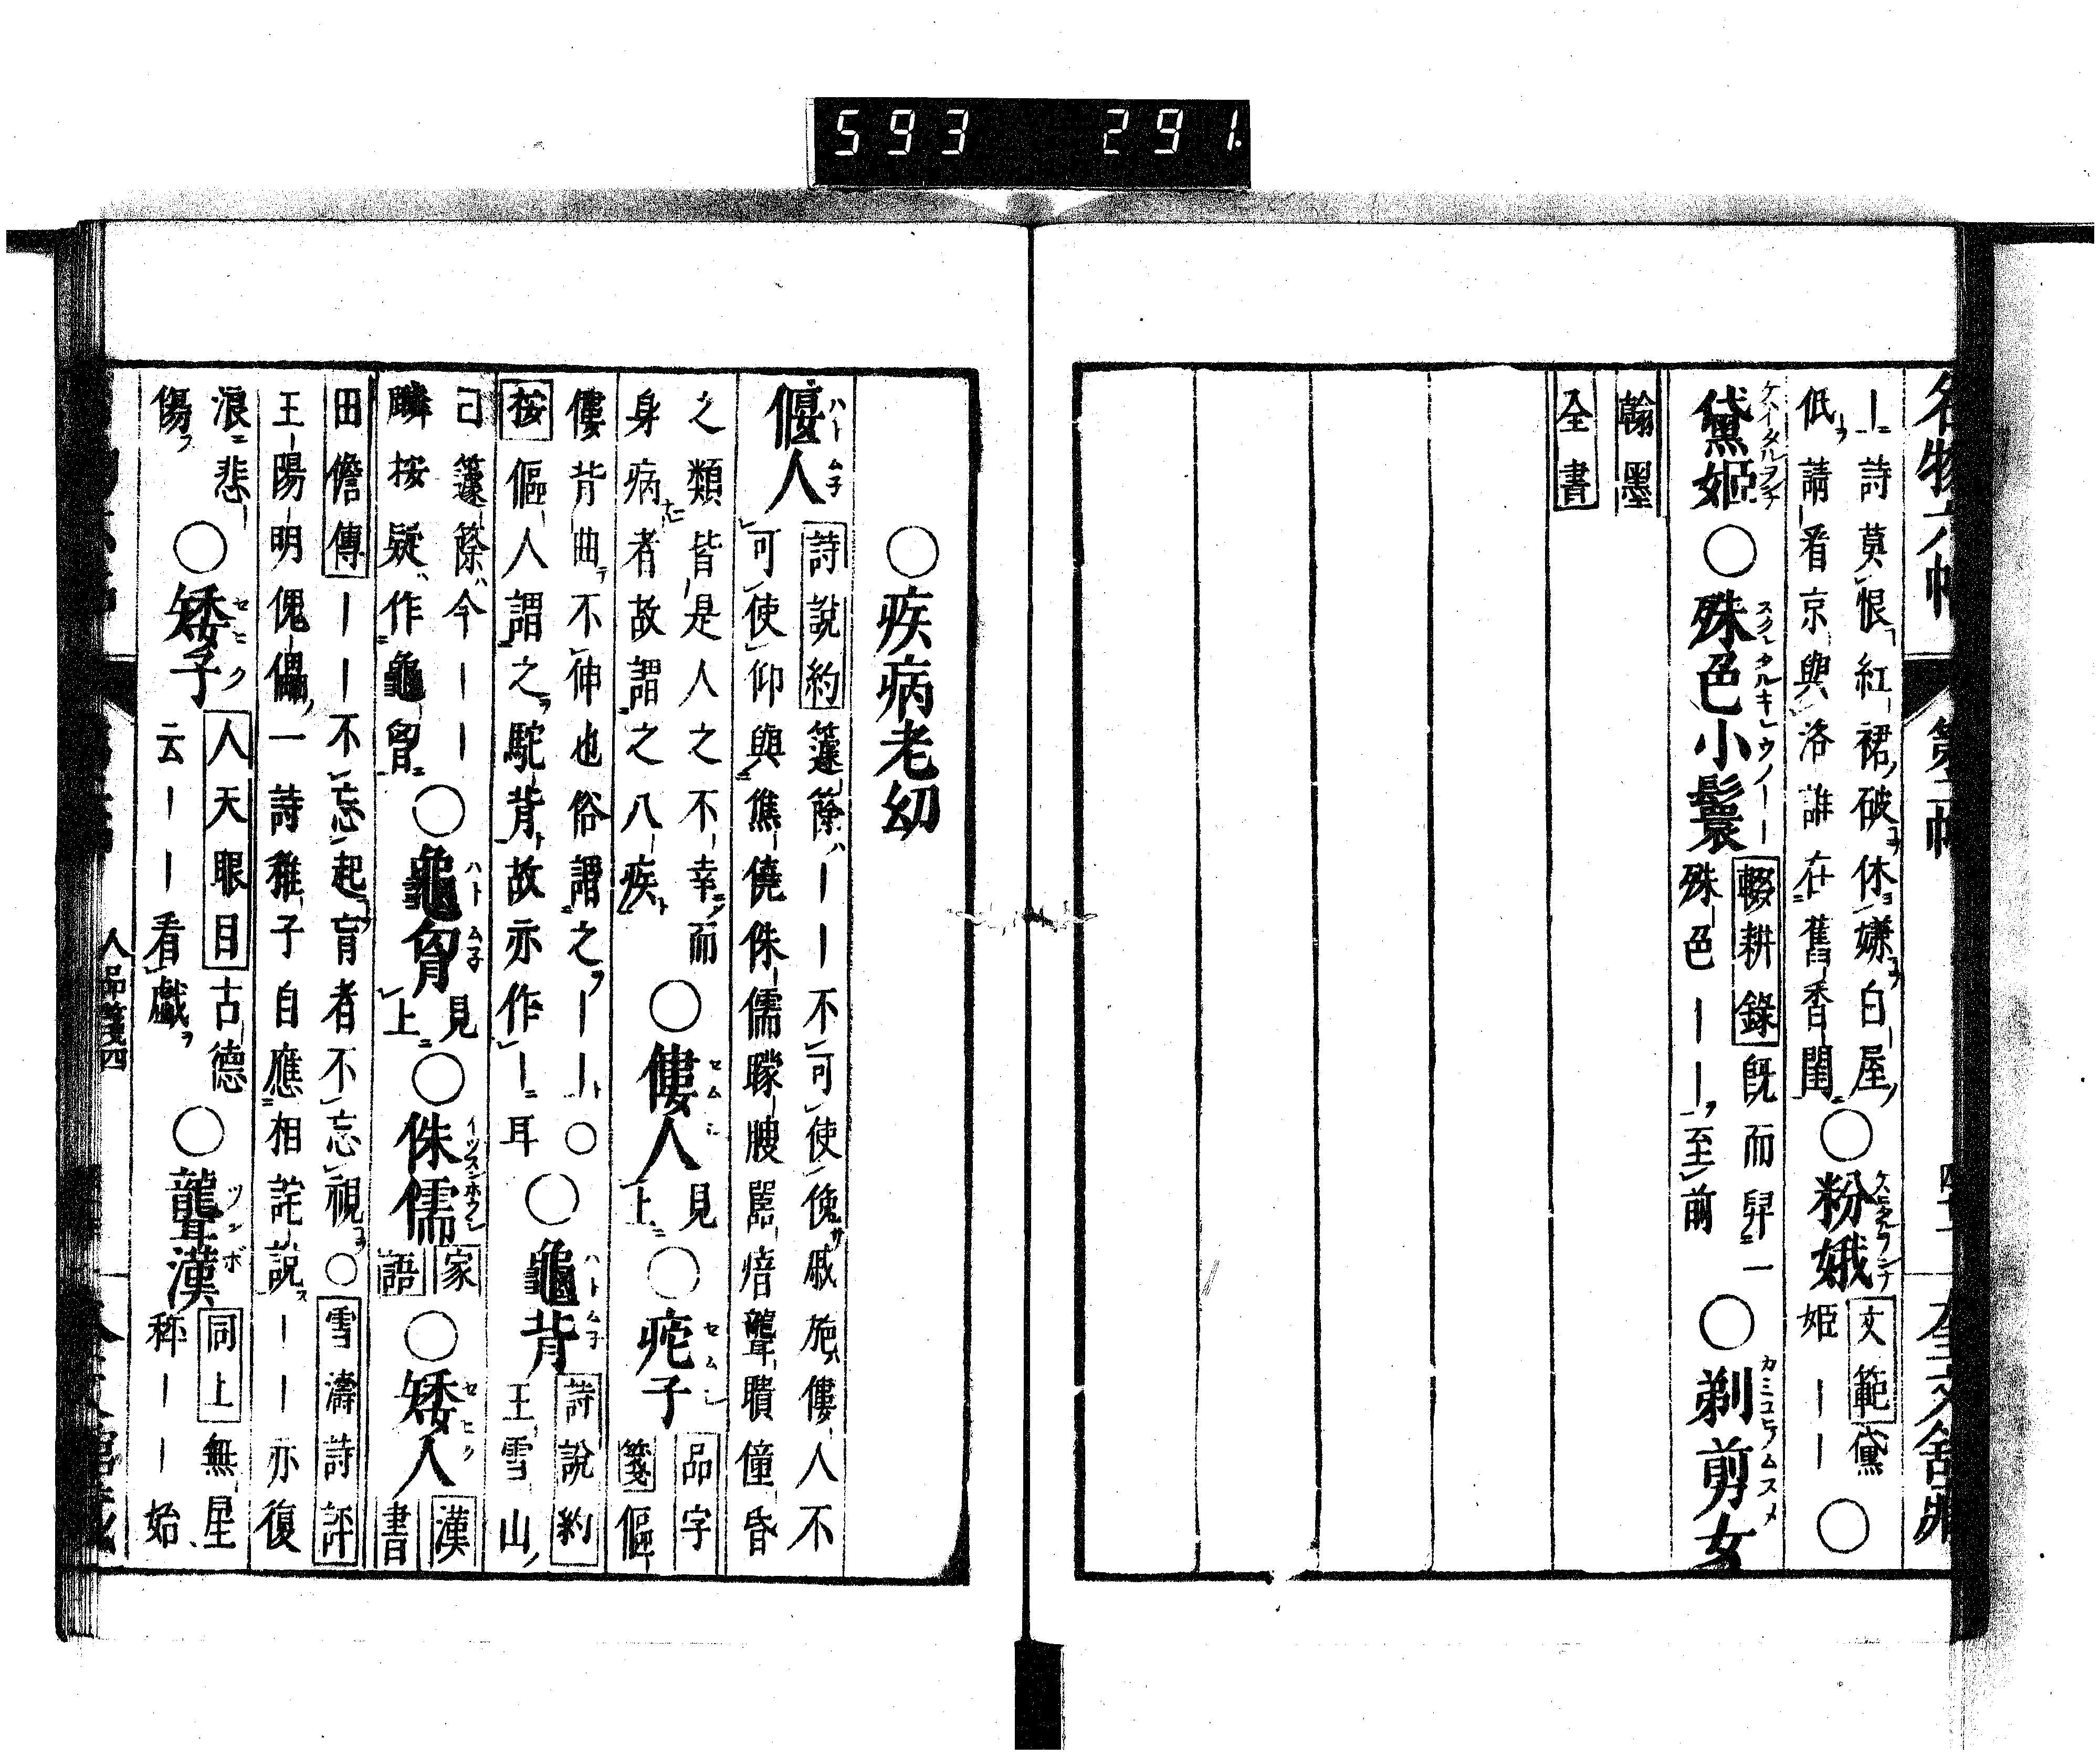 593 291.
名物六帖 第二帖
｜詩莫恨紅裙破休嫌白屋
低請看京與洛誰在舊香閨
○粉娥
文範黛
姬｜｜
○
黛姬
○殊色小鬟
輟耕錄既而舁一
殊色｜｜至前
○剃剪女
翰墨
全書
○疾病老幼
偃人
詩說約籧篨｜｜不可使俛戚施僂人不
可使仰與僬僥侏儒矇瞍嚚瘖聾聵僮昏
之類皆是人之不幸而
身病者故謂之八疾
○僂人
見
上
○痀子
品字
箋傴
僂背曲不伸也俗謂之｜｜○
按傴人謂之駝背故亦作｜耳
○龜背
詩說約
王雪山
己籧篨今｜｜
麟按疑作龜胷
○龜胷
見
上
○侏儒
家
語
○矮人
漢
書
田儋傳｜｜不忘起盲者不忘視○雪濤詩評
王陽明傀儡一詩稚子自應相詫說｜｜亦復
浪悲
傷
○矮子
人天眼目古德
云｜｜看戲
○聾漢
同上無星
秤｜｜始
人品箋四